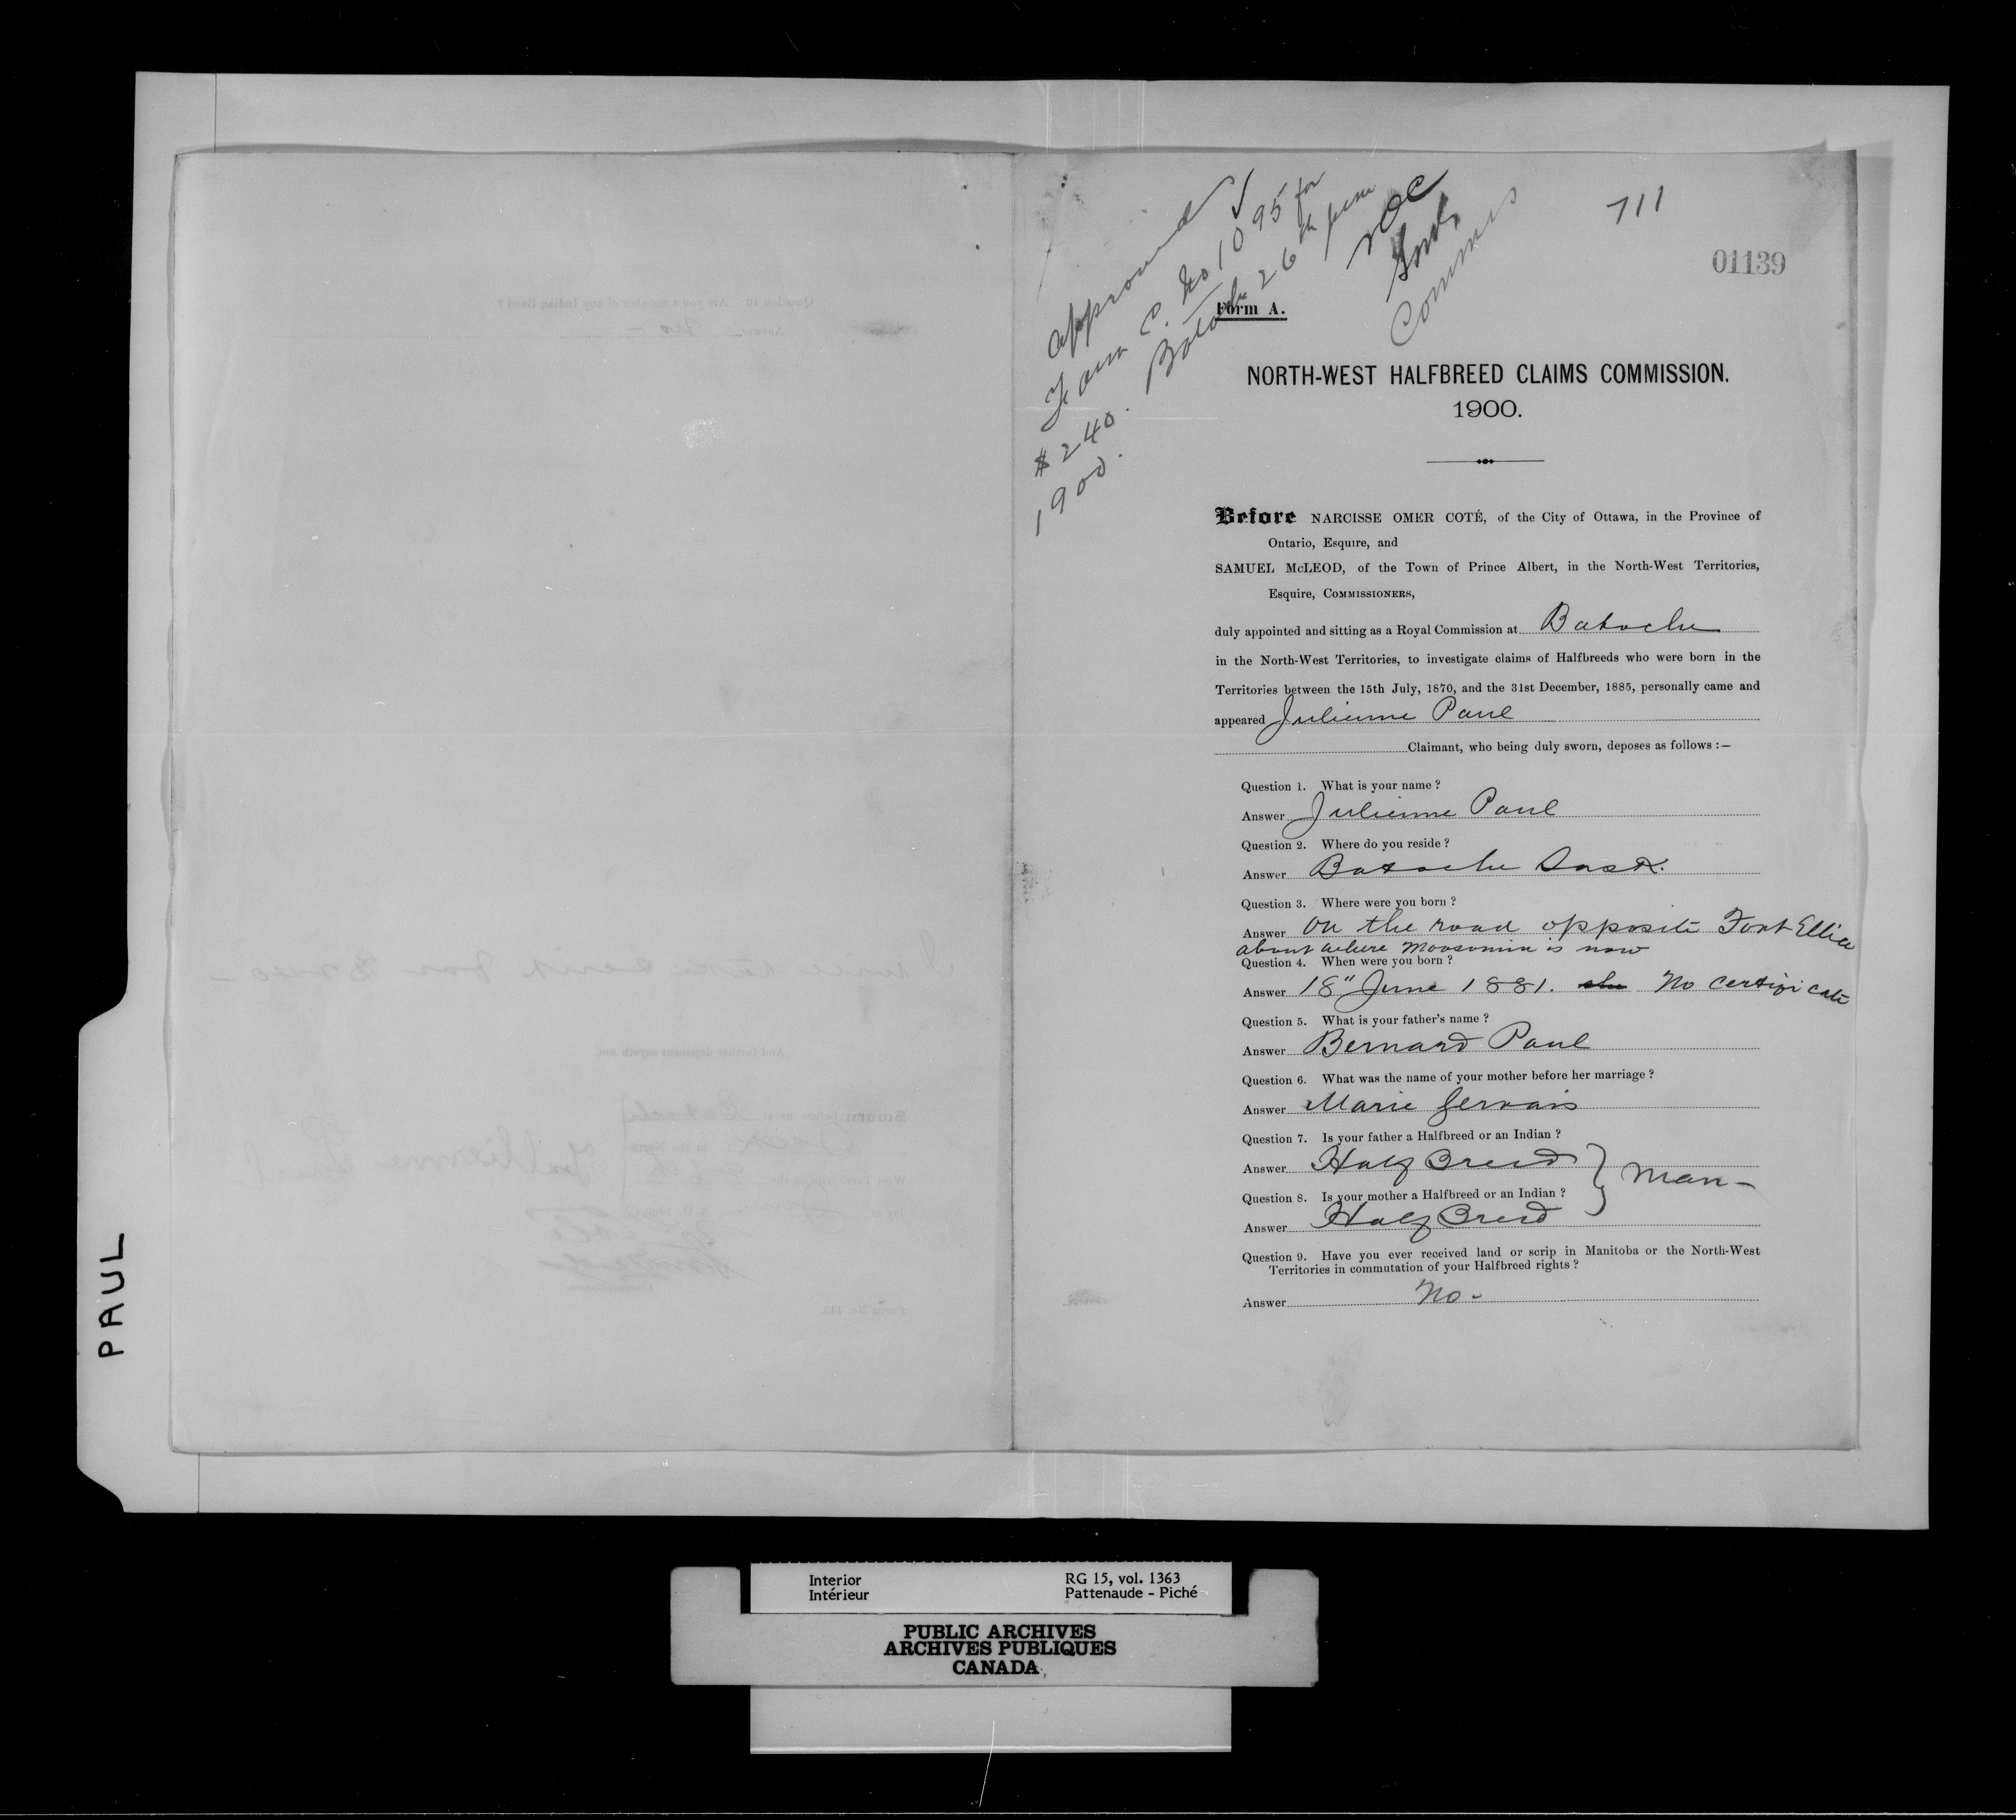 approved
Form C. No 1095 for
$240. Batoche 26th June
1900.
NOC
SMcL
Commrs
711
01139
Form A.
NORTH-WEST HALFBREED CLAIMS COMMISSION.
1900.
Before NARCISSE OMER COTÉ, of the City of Ottawa, in the Province of
Ontario, Esquire, and
SAMUEL McLEOD, of the Town of Prince Albert, in the North-West Territories,
Esquire, COMMISSIONERS,
duly appointed and sitting as a Royal Commission at Batoche
in the North-West Territories, to investigate claims of Halfbreeds who were born in the
Territories between the 15th July, 1870, and the 31st December, 1885, personally came and
appeared Julienne Paul
Claimant, who being duly sworn, deposes as follows :—
Question 1. What is your name ?
Answer Julienne Paul
Question 2. Where do you reside ?
Answer Batoche Sask.
Question 3. Where were you born ?
Answer On the road opposite Fort Ellice
about where Moosomin is now
Question 4. When were you born ?
Answer 18" June 1881. No certificate
Question 5. What is your father's name ?
Answer Bernard Paul
Question 6. What was the name of your mother before her marriage ?
Answer Marie Gervais
Question 7. Is your father a Halfbreed or an Indian ?
Answer Half Breed } Man –
Question 8. Is your mother a Halfbreed or an Indian ?
Answer Half Breed
Question 9. Have you ever received land or scrip in Manitoba or the North-West
Territories in commutation of your Halfbreed rights ?
Answer No -
PAUL
Interior RG 15, vol. 1363
Intérieur Pattenaude - Piché
PUBLIC ARCHIVES
ARCHIVES PUBLIQUES
CANADA